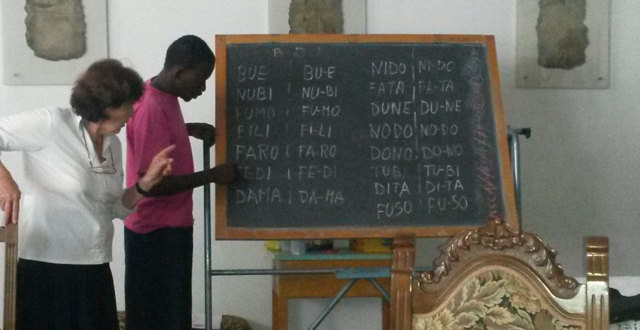 BUE | BU-E
NUBI | NU-BI
FUMO | FU-MO
FILI | FI-LI
FARO | FA-RO
FEDI | FE-DI
DAMA | DA-MA
NIDO | NI-DO
FATA | FA-TA
DUNE | DU-NE
NODO | NO-DO
DONO | DO-NO
TUBI | TU-BI
DITA | DI-TA
FUSO | FU-SO